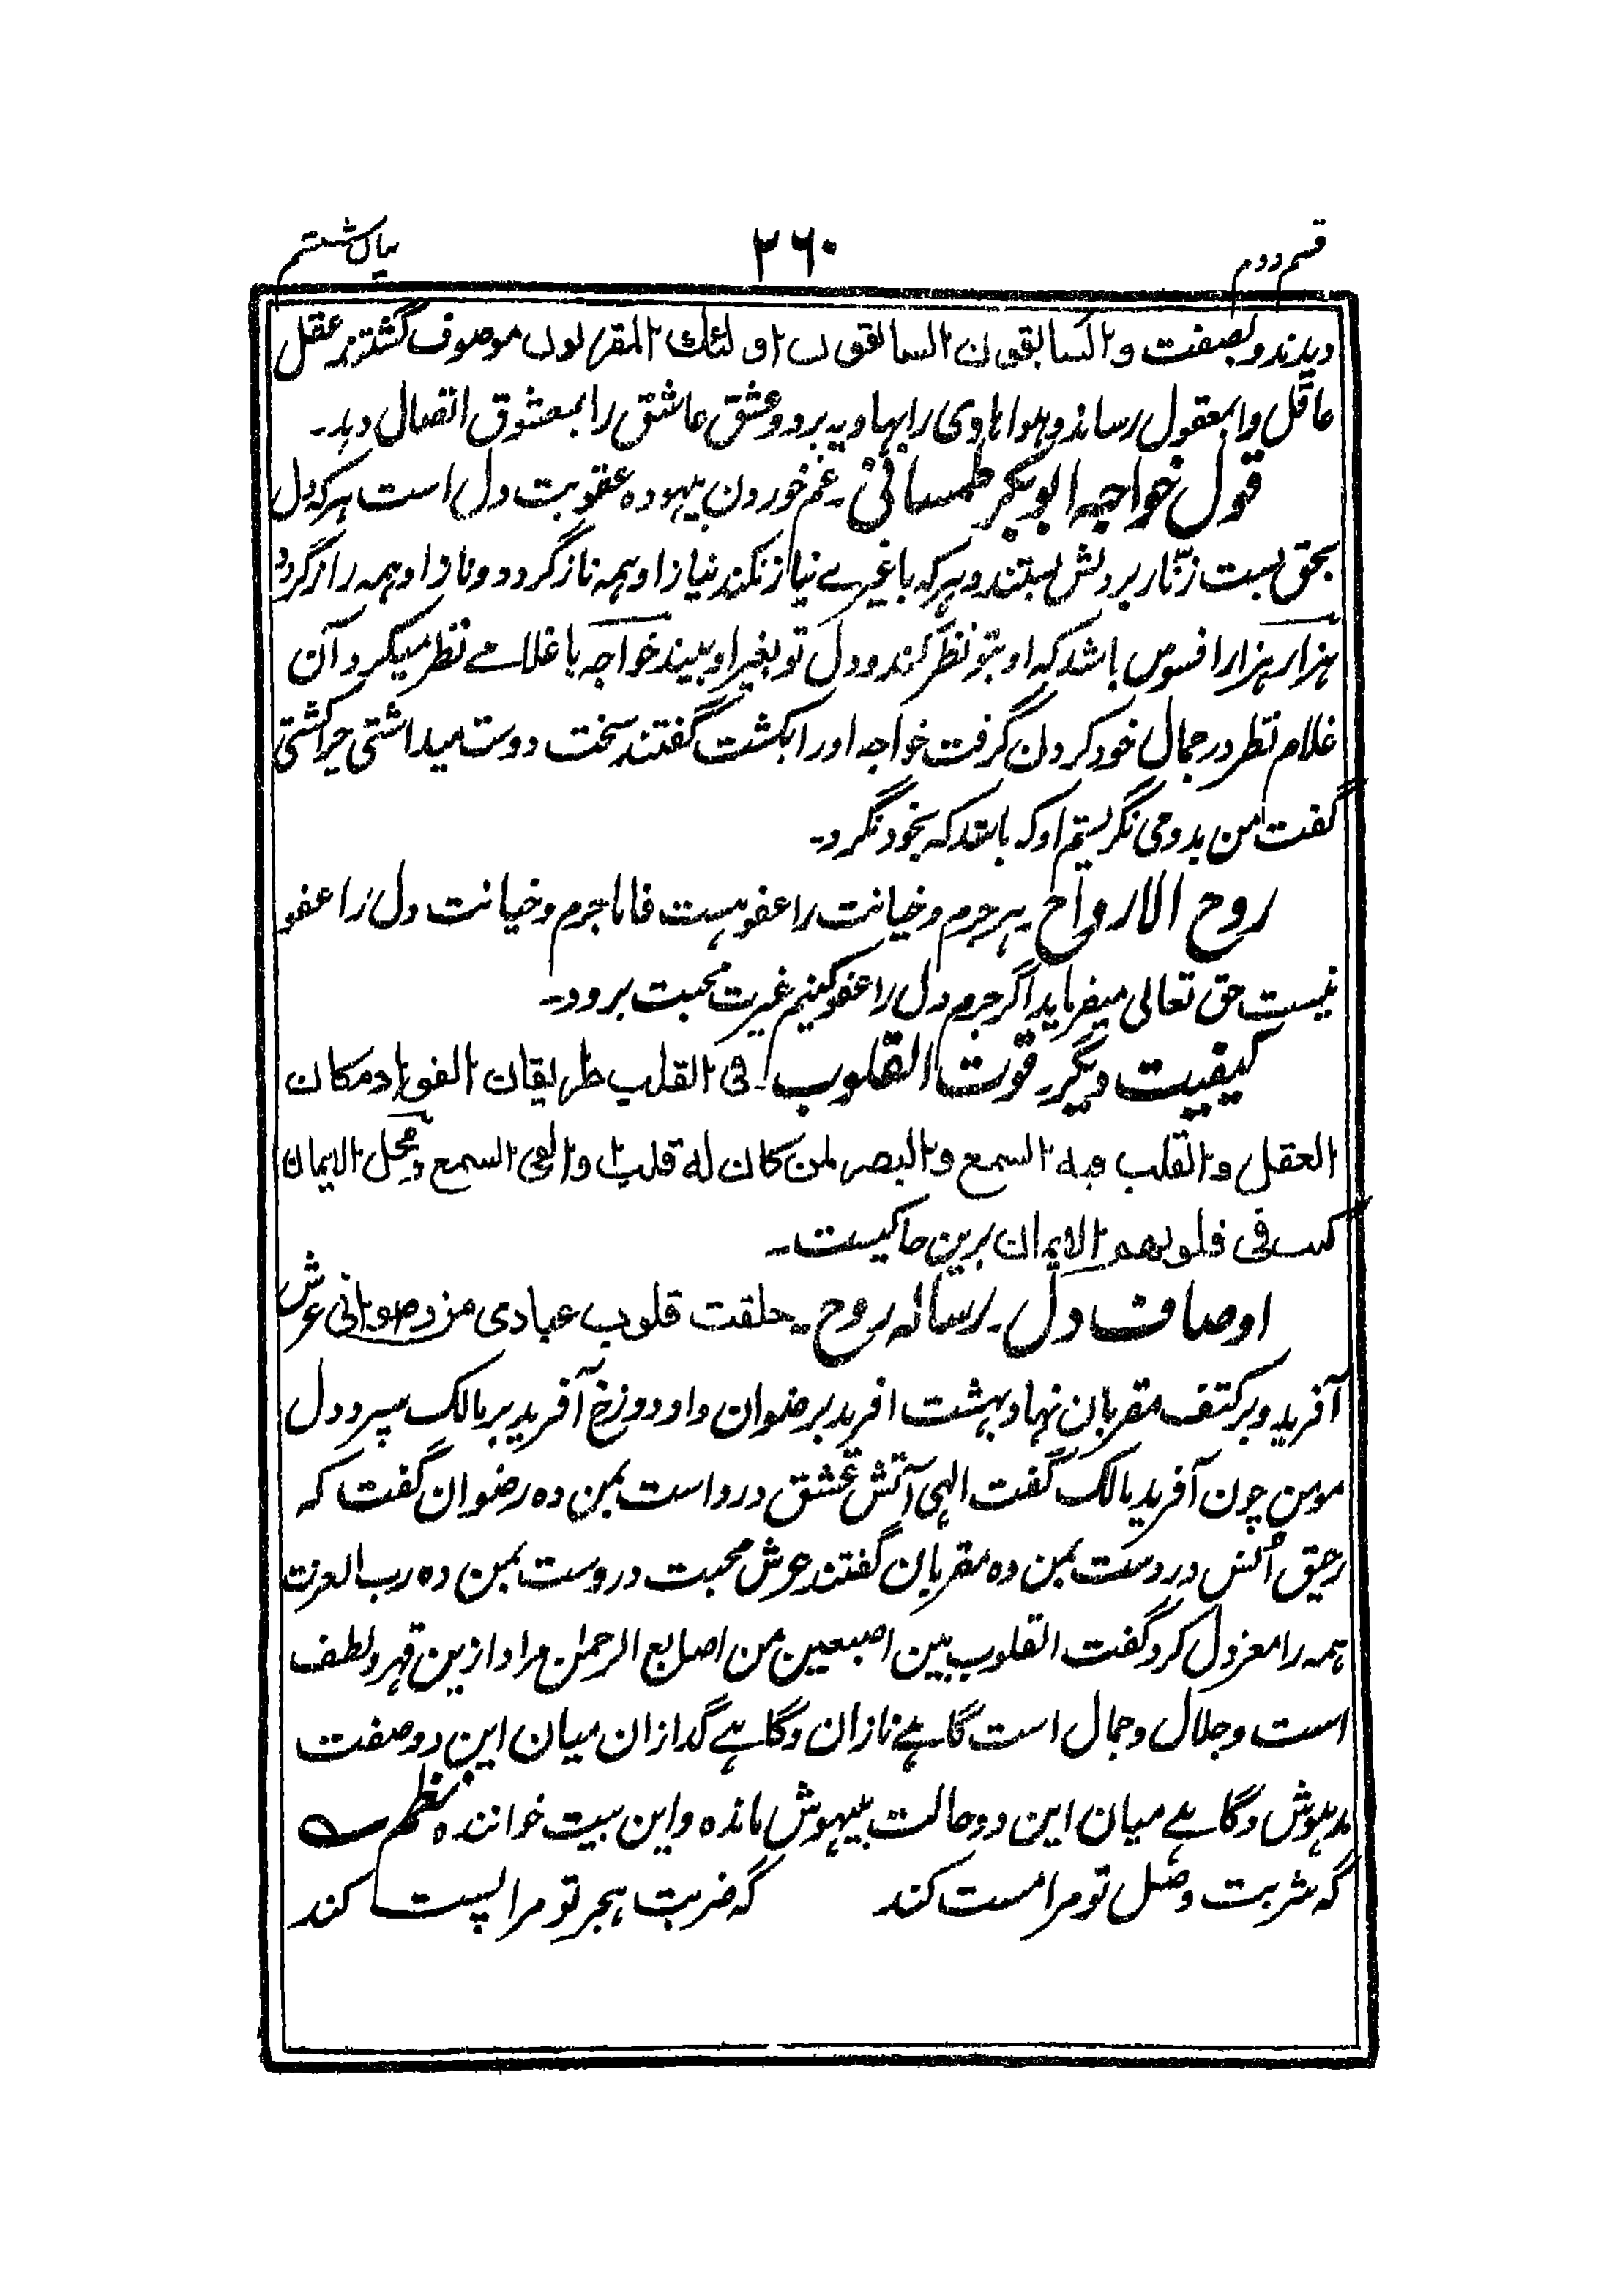 قسم دوم ۲۶۰ بیان ششم
دیدند و بصفت والسابقون السابقون اولئك المقربون موصوف گشتند عقل
عاقل را بمعقول رساند و هوا هاوی را بهاویه برد و عشق عاشق را بمعشوق اتصال دہد۔
قول خواجہ ابوبکر طمسانی۔ غم خوردن بیہودہ عقوبت دل است ہر کہ دل
بحق بست زنّار بر دلش بستند و ہر کہ با غیرے نیاز نکند نیاز او ہمہ ناز گردد و ناز او ہمہ راز گردد
ہزار ہزار افسوس باشد کہ او بتو نظر کند و دل تو بغیر او بیند خواجہ با غلامے نظر میکرد آن
غلام نظر در جمال خود کردن گرفت خواجہ او را بکشت گفتند سخت دوست میداشتی چرا کشتی
گفت من بدو می نگریستم او کہ باشد کہ بخود نگرد۔
روح الارواح۔ ہر جرم و خیانت را عفو ہست فاما جرم و خیانت دل را عفو
نیست حق تعالی میفرماید اگر جرم دل را عفو کنیم غیرت محبت برود۔
کیفیت دیگر۔ قوت القلوب۔ فی القلب طریقان الفواد مکان
العقل والقلب وبه السمع والبصر لمن کان له قلب والقی السمع ومحل الایمان
کتب فی قلوبهم الایمان برین حاکیست۔
اوصاف دل۔ رسالہ روح۔ خلقت قلوب عبادی من رضوانی عرش
آفرید و بر کتف مقربان نہاد بہشت آفرید برضوان داد دوزخ آفرید بمالک سپرد دل
مومن چون آفرید مالک گفت الہی آتش عشق درد است بمن دہ رضوان گفت کہ
رحیق اُنس دروست بمن دہ مقربان گفتند عرش محبت دروست بمن دہ رب العزت
ہمہ را معزول کرد گفت القلوب بین اصبعین من اصابع الرحمٰن مراد ازین قہر و لطف
است و جلال و جمال است گاہے نازان و گاہے گدازان میان این دو صفت
مدہوش و گاہے میان این دو حالت بیہوش ماندہ و این بیت خوانندہ نظم
گہ شربت وصل تو مرا مست کند گہ ضربت ہجر تو مرا پست کند